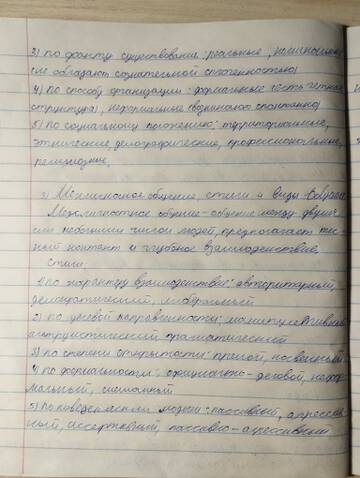 3) по факту существования: реальные, номинальные
(не обладают социальной сплоченностью)
4) По способу организации: формальные (есть четкая
структура), неформальные (возникают спонтанно)
5) По социальному положению: территориальные,
этнические, демографические, профессиональные,
религиозные.
3) Межличностное общение, стили и виды
Межличностное общение - общение между двумя
или небольшим числом людей, предполагает тес-
ный контакт и глубокое взаимодействие
Стили:
1) по характеру взаимодействия: авторитарный,
демократический, либеральный
2) по целевой направленности: манипулятивный
альтруистический, прагматический
3) по степени открытости: прямой, косвенный
4) по формальности: официально-деловой, нефор-
мальный, смешанный
5) По поведенческой модели: пассивный, агрессив-
ный, ассертивный, пассивно-агрессивный